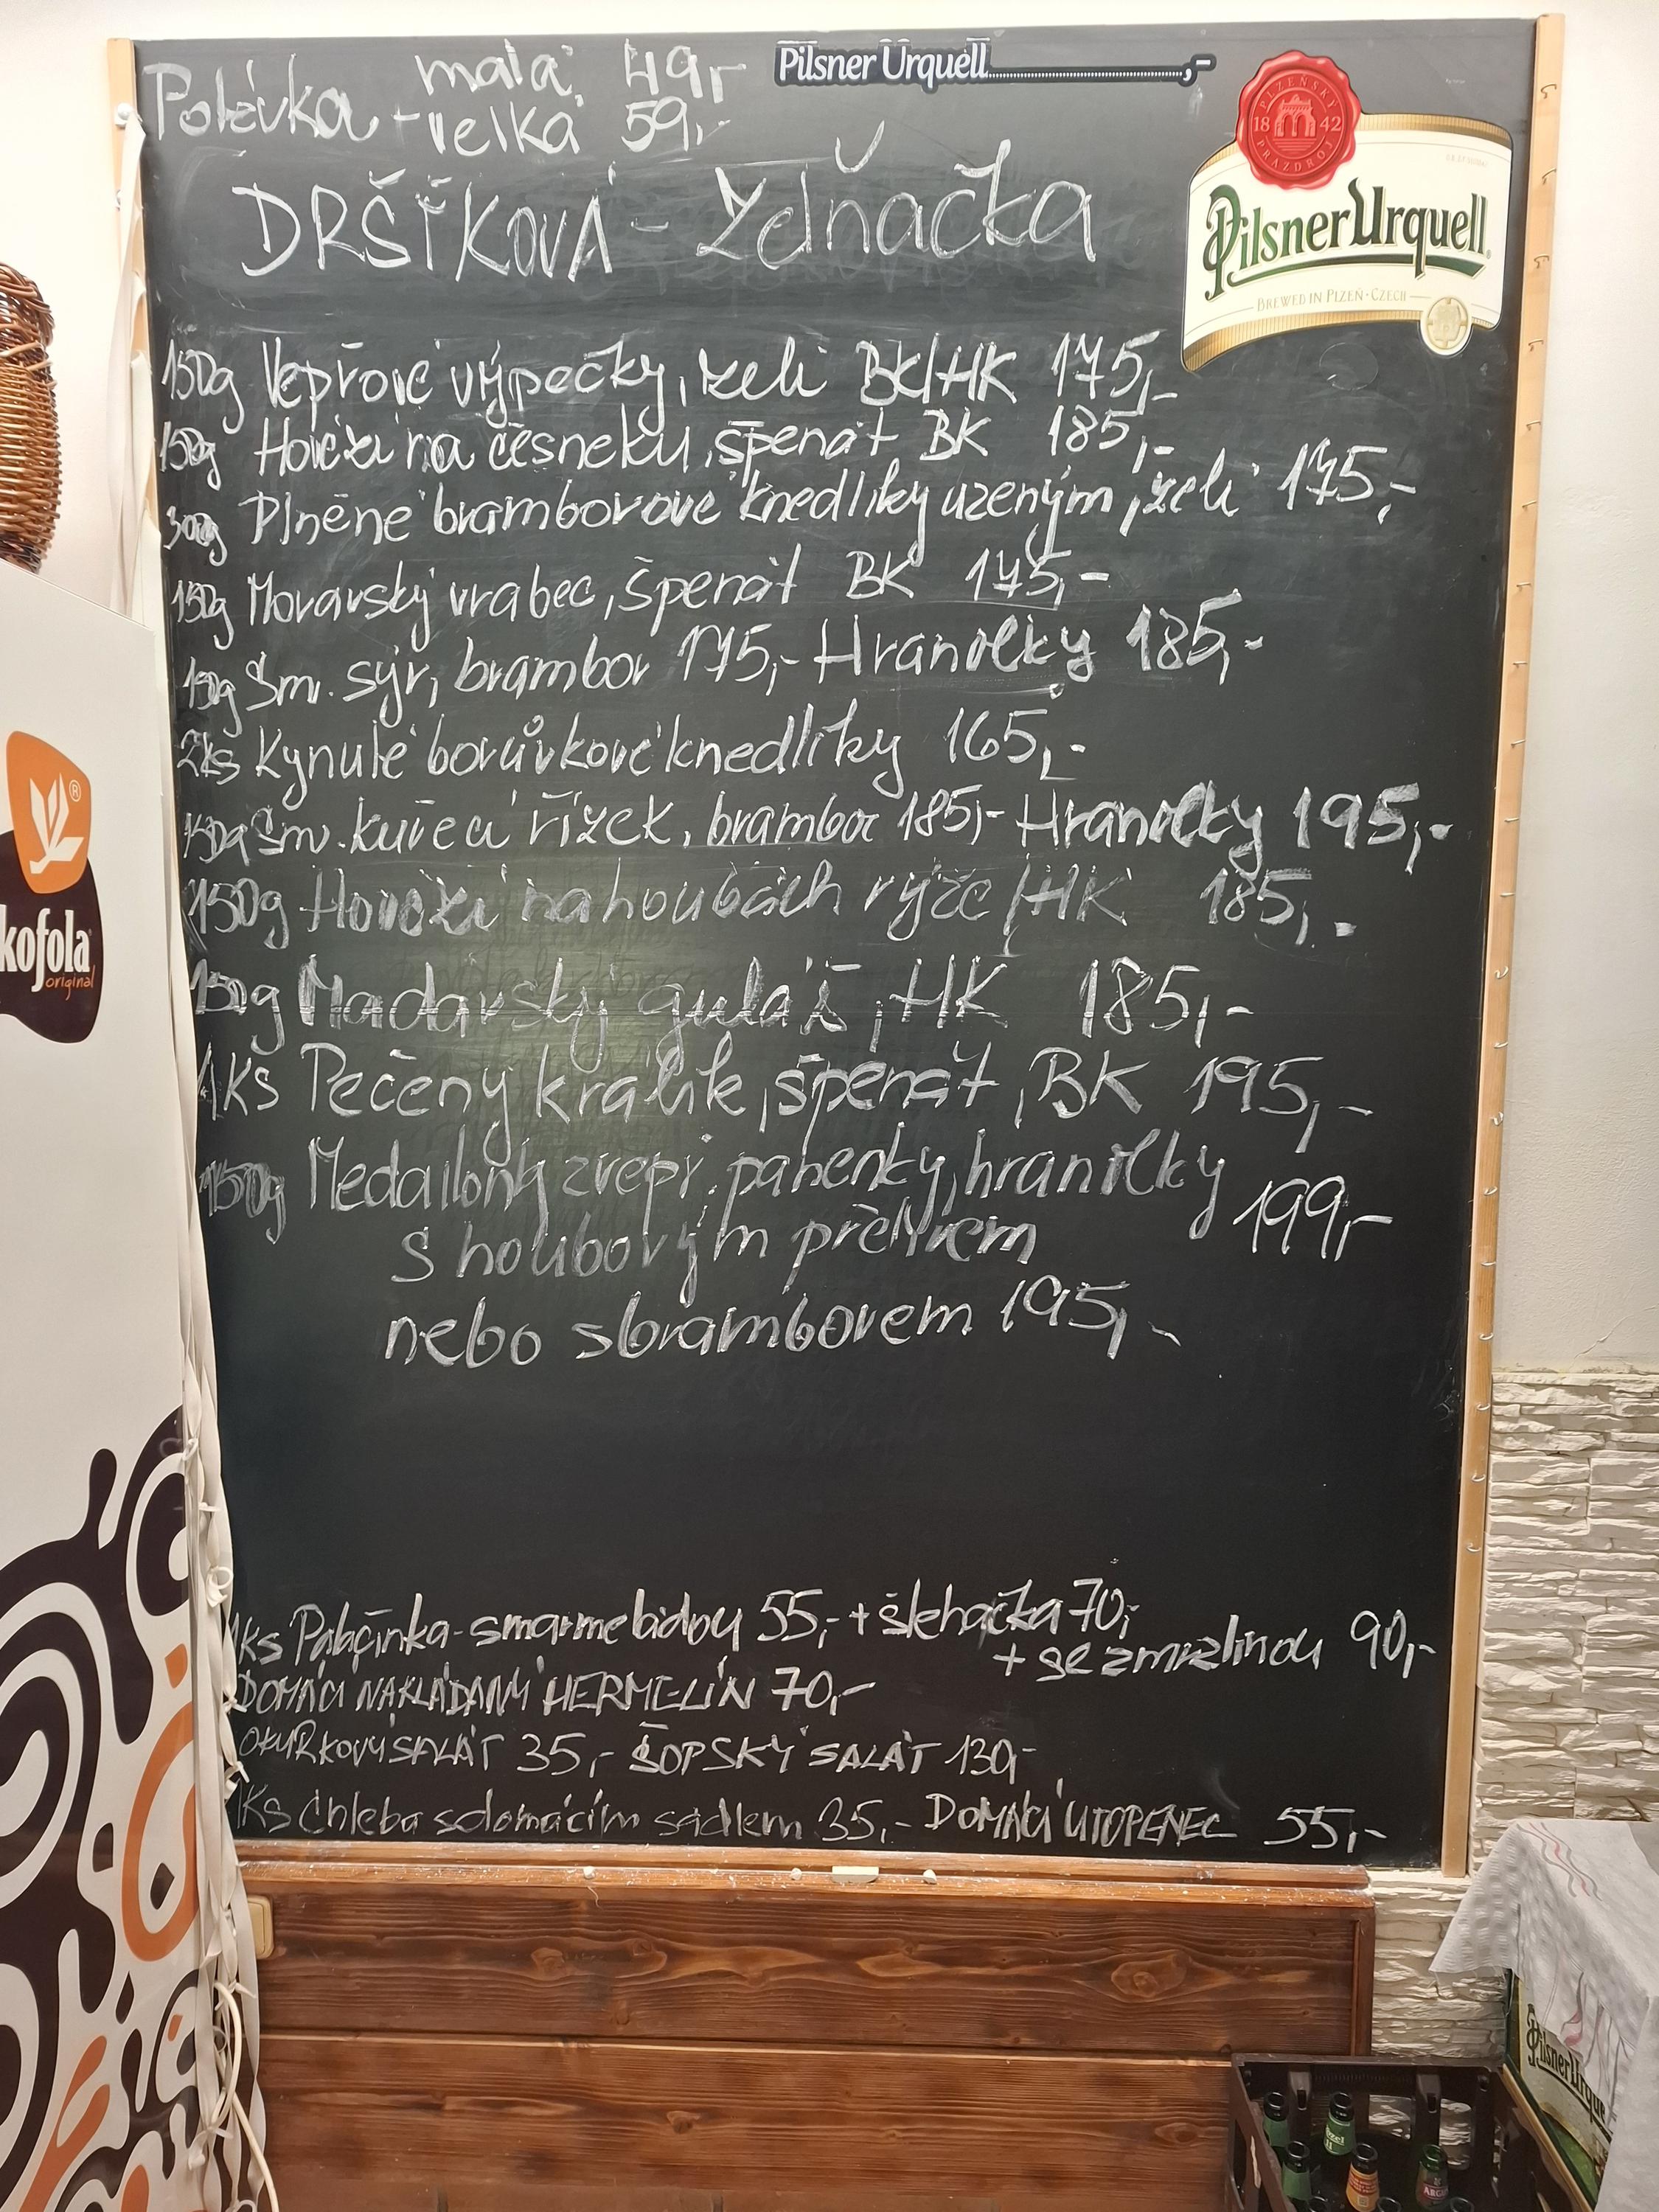 Polévka - malá 49,-
velká 59,-
Pilsner Urquell ,-
DRŠŤKOVÁ - Zelňačka
PLZEŇSKÝ PRAZDROJ
18 42
Pilsner Urquell
BREWED IN PLZEŇ · CZECH
150g Vepřové výpečky, zelí BK/HK 175,-
150g Hovězí na česneku, špenát BK 185,-
300g Plněné bramborové knedlíky uzeným, zelí 175,-
150g Moravský vrabec, špenát BK 175,-
150g Sm. sýr, brambor 175,- Hranolky 185,-
2ks Kynulé borůvkové knedlíky 165,-
150g Sm. kuřecí řízek, brambor 185,- Hranolky 195,-
150g Hovězí na houbách rýže/HK 185,-
150g Maďarský guláš, HK 185,-
1Ks Pečený králík, špenát, BK 195,-
150g Medailonky z vepř. panenky, hranolky 199,-
s houbovým přelivem
nebo s bramborem 195,-
1ks Palačinka - s marmeládou 55,- + šlehačka 70,-
+ se zmrzlinou 90,-
DOMÁCÍ NAKLÁDANÝ HERMELÍN 70,-
OKURKOVÝ SALÁT 35,- ŠOPSKÝ SALÁT 130,-
1Ks Chleba s domácím sádlem 35,- DOMÁCÍ UTOPENEC 55,-
kofola
original
Pilsner Urque